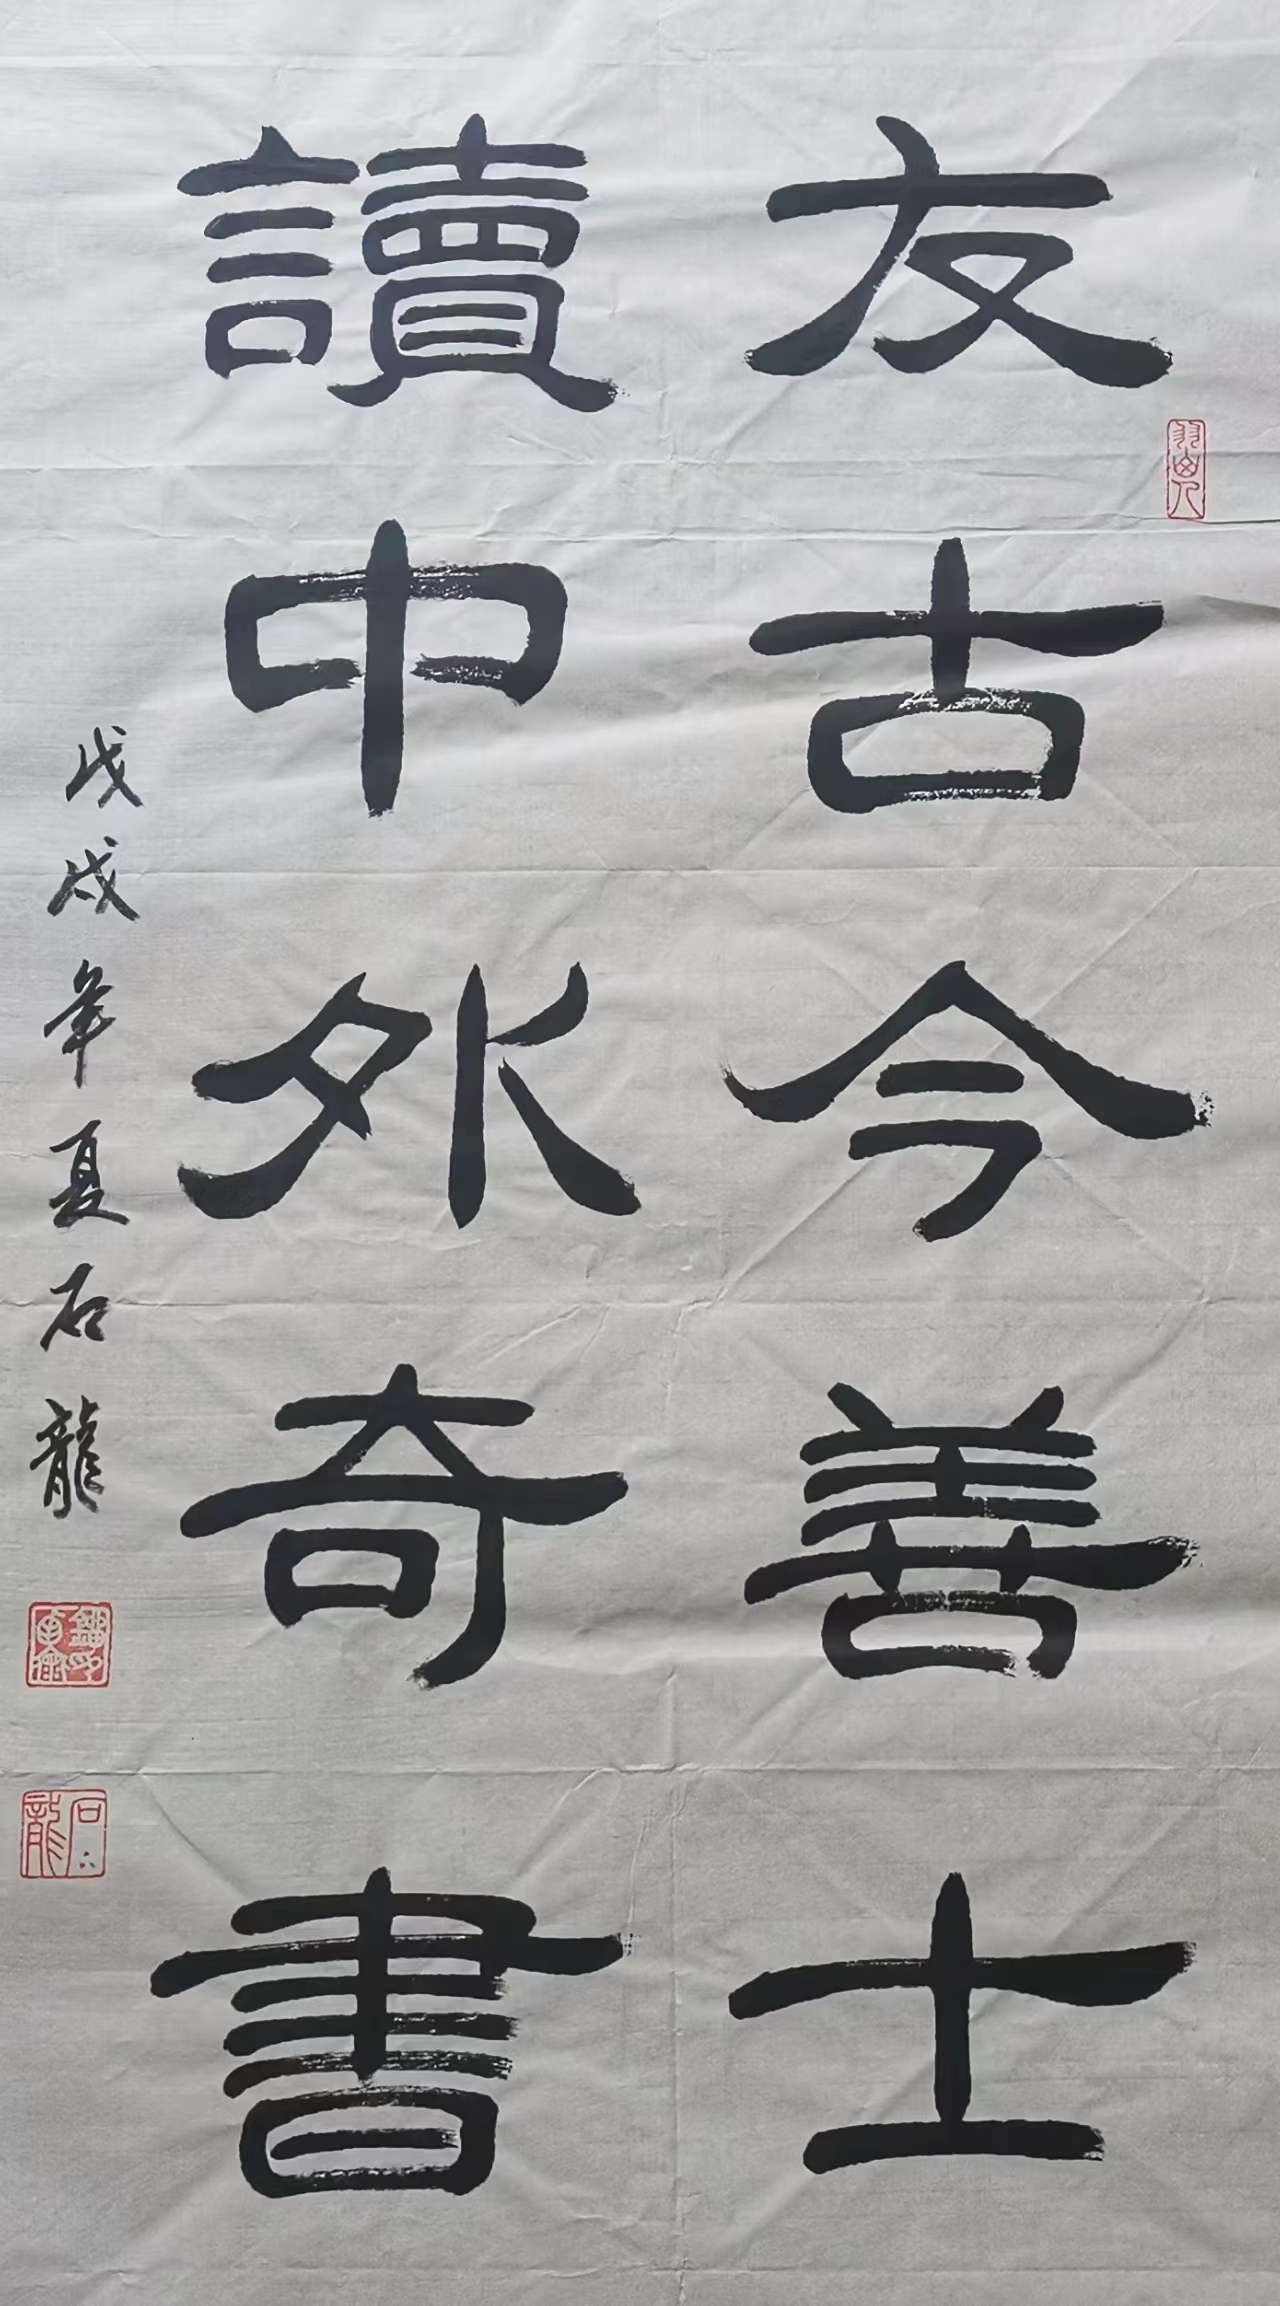 友古今善士
讀中外奇書
戊戌年夏石龍
石龍